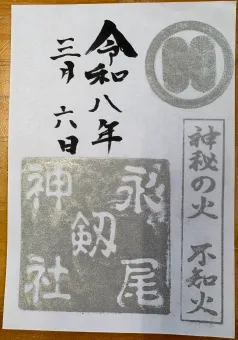 神秘の火 不知火
令和八年
三月 六日
永尾
剱
神社